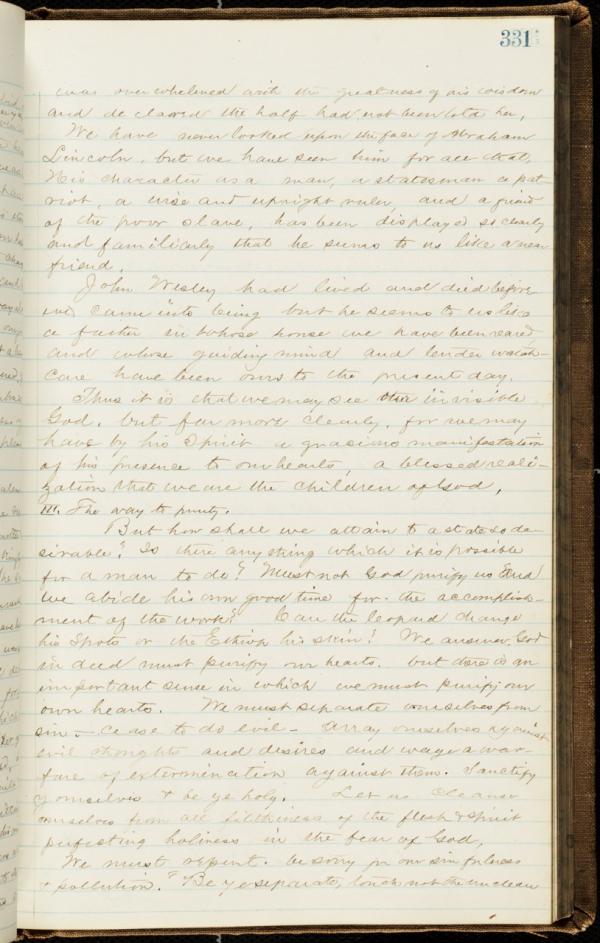 331
was overwhelmed with the greatness of his wisdom
and declared the half had not been told her.
We have never looked upon the face of Abraham
Lincoln, but we have seen him for all that.
His character as a man, a statesman a pat
riot, a wise and upright ruler, and a friend
of the poor slave, has been displayed so clearly
and familiarly that he seems to us like a near
friend.
John Wesley had lived and died before
we came into being but he seems to us like
a father in whose house we have been reared
and whose guiding mind and tender watch-
care have been ours to the present day.
Thus it is that we may see the invisible
God, but far more clearly, for we may
have by his Spirit a gracious manifestation
of his presence to our hearts, a blessed reali-
zation that we are the children of God.
III. The way to purity.
But how shall we attain to a state so de-
sirable? Is there any thing which it is possible
for a man to do? Must not God purify us and
we abide his own good time for the accomplish-
ment of the work? Can the leopard change
his spots or the Ethiop his skin? We answer, God
indeed must purify our hearts. but there is an
important sense in which we must purify our
own hearts. We must separate ourselves from
sin. - Cease to do evil - array ourselves against
evil thoughts and desires and wage a war-
fare of extermination against them. Sanctify
yourselves & be ye holy. Let us cleanse
ourselves from all filthiness of the flesh & spirit
perfecting holiness in the fear of God.
We must repent. be sorry for our sinfulness
& pollution. "Be ye separate, touch not the unclean